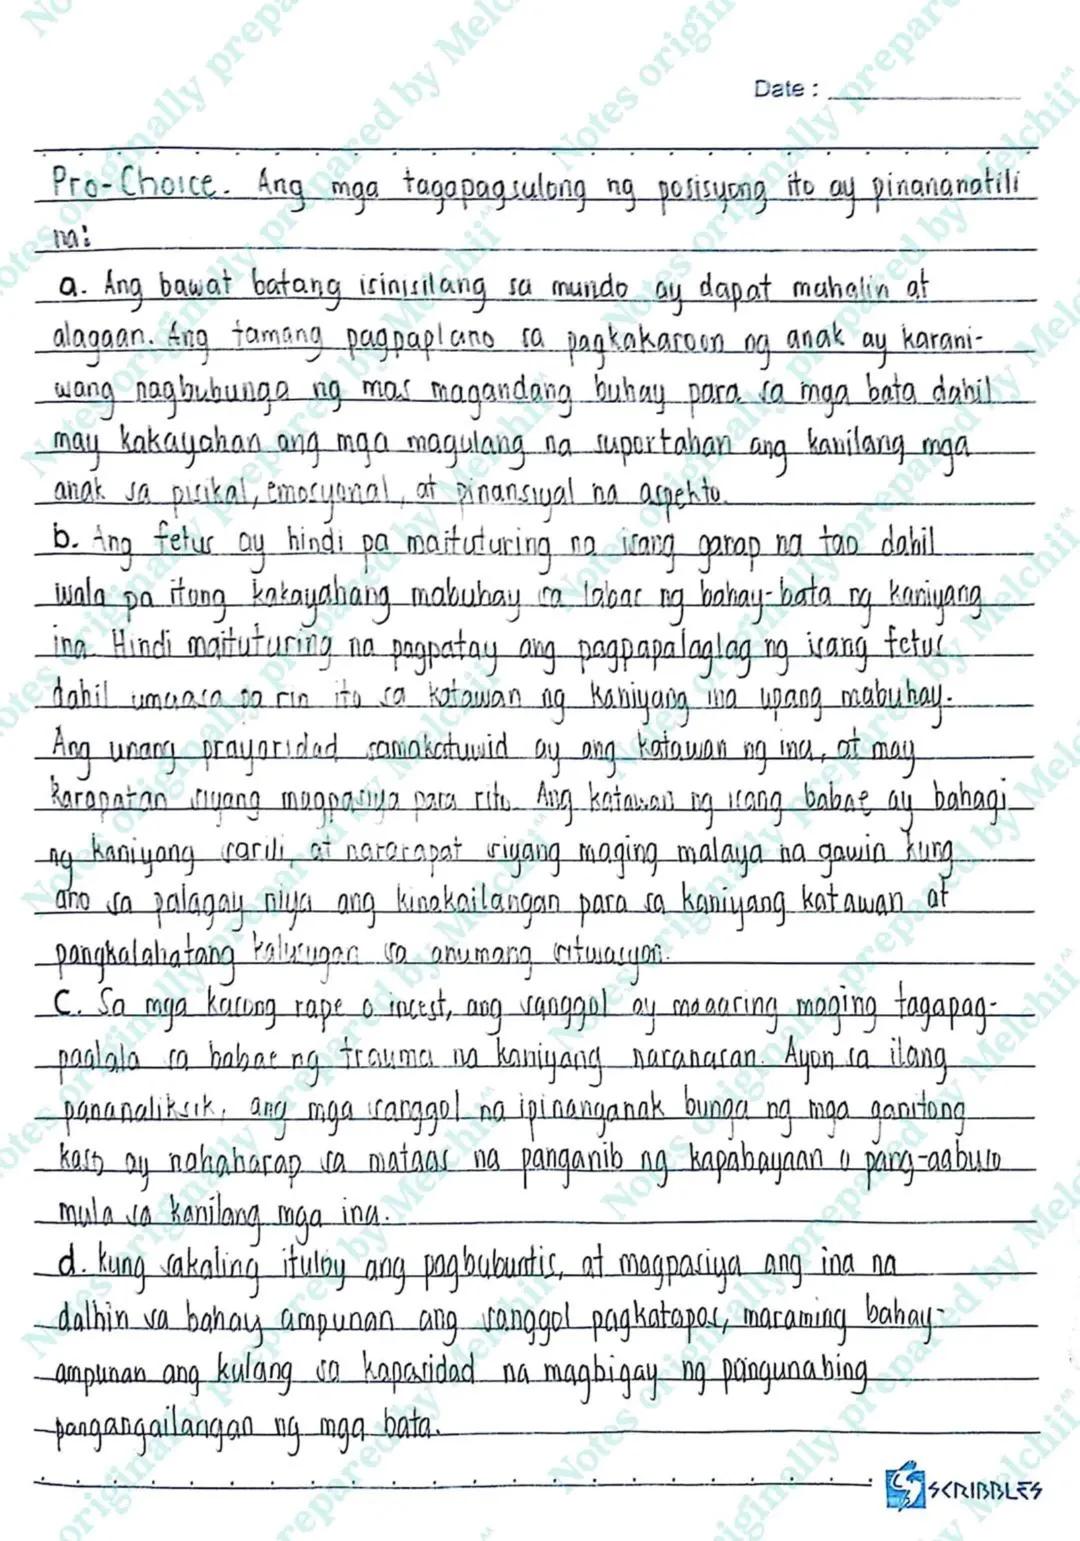 Date :
Pro-Choice. Ang mga tagapagsulong ng posisyong ito ay pinananatili
na:
a. Ang bawat batang isinisilang sa mundo ay dapat mahalin at
alagaan. Ang tamang pagpaplano sa pagkakaroon ng anak ay karani-
wang nagbubunga ng mas magandang buhay para sa mga bata dahil
may kakayahan ang mga magulang na suportahan ang kanilang mga
anak sa pisikal, emosyonal, at pinansiyal na aspekto.
b. Ang fetus ay hindi pa maituturing na isang ganap na tao dahil
wala pa itong kakayahang mabuhay sa labas ng bahay-bata ng kaniyang
ina. Hindi maituturing na pagpatay ang pagpapalaglag ng isang fetus
dahil umaasa pa rin ito sa katawan ng kaniyang ina upang mabuhay.
Ang unang prayoridad samakatuwid ay ang katawan ng ina, at may
karapatan siyang magpasiya para rito. Ang katawan ng isang babae ay bahagi
ng kaniyang sarili, at nararapat siyang maging malaya na gawin kung
ano sa palagay niya ang kinakailangan para sa kaniyang katawan at
pangkalahatang kalusugan sa anumang sitwasyon.
C. Sa mga kasong rape o incest, ang sanggol ay maaaring maging tagapag-
paalala sa babae ng trauma na kaniyang naranasan. Ayon sa ilang
pananaliksik, ang mga sanggol na ipinanganak bunga ng mga ganitong
kaso ay nahaharap sa mataas na panganib ng kapabayaan o pang-aabuso
mula sa kanilang mga ina.
d. Kung sakaling ituloy ang pagbubuntis, at magpasiya ang ina na
dalhin sa bahay ampunan ang sanggol pagkatapos, maraming bahay-
ampunan ang kulang sa kapasidad na magbigay ng pangunahing
pangangailangan ng mga bata.
SCRIBBLES
Notes originally prepared by Melchii^^